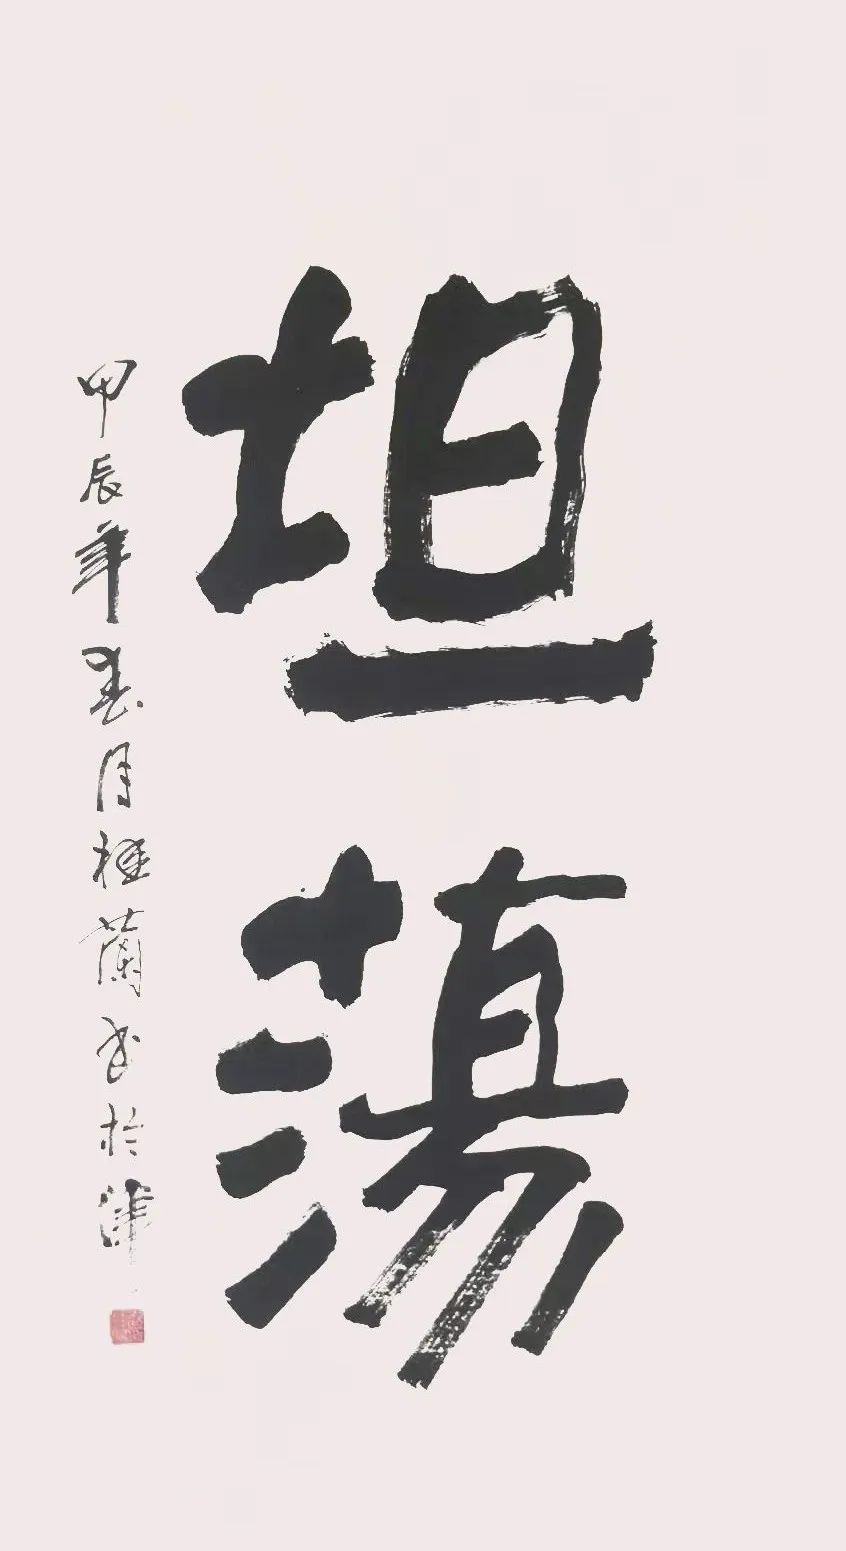 坦蕩
甲辰年春月桂蘭书於津